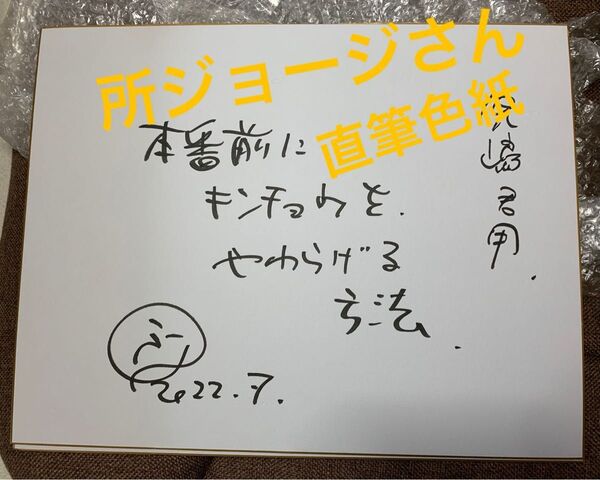 所ジョージさん
直筆色紙
嶋君用.
本番前に
キンチョウを.
やわらげる
方法.
2022.7.